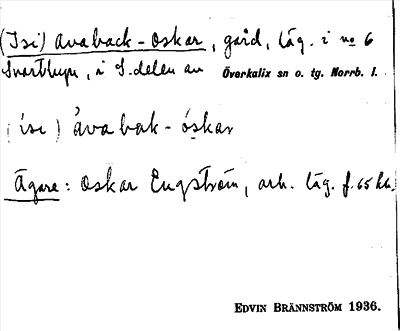 (Isi) avaback-Oskar, gård, läg. i no 6
Svartbyn, i S.delen av Överkalix sn o. tg. Norrb. l.
(ísi) ávabak-óskar
Ägare: Oskar Engström, arb. läg. f. 65
EDVIN BRÄNNSTRÖM 1936.